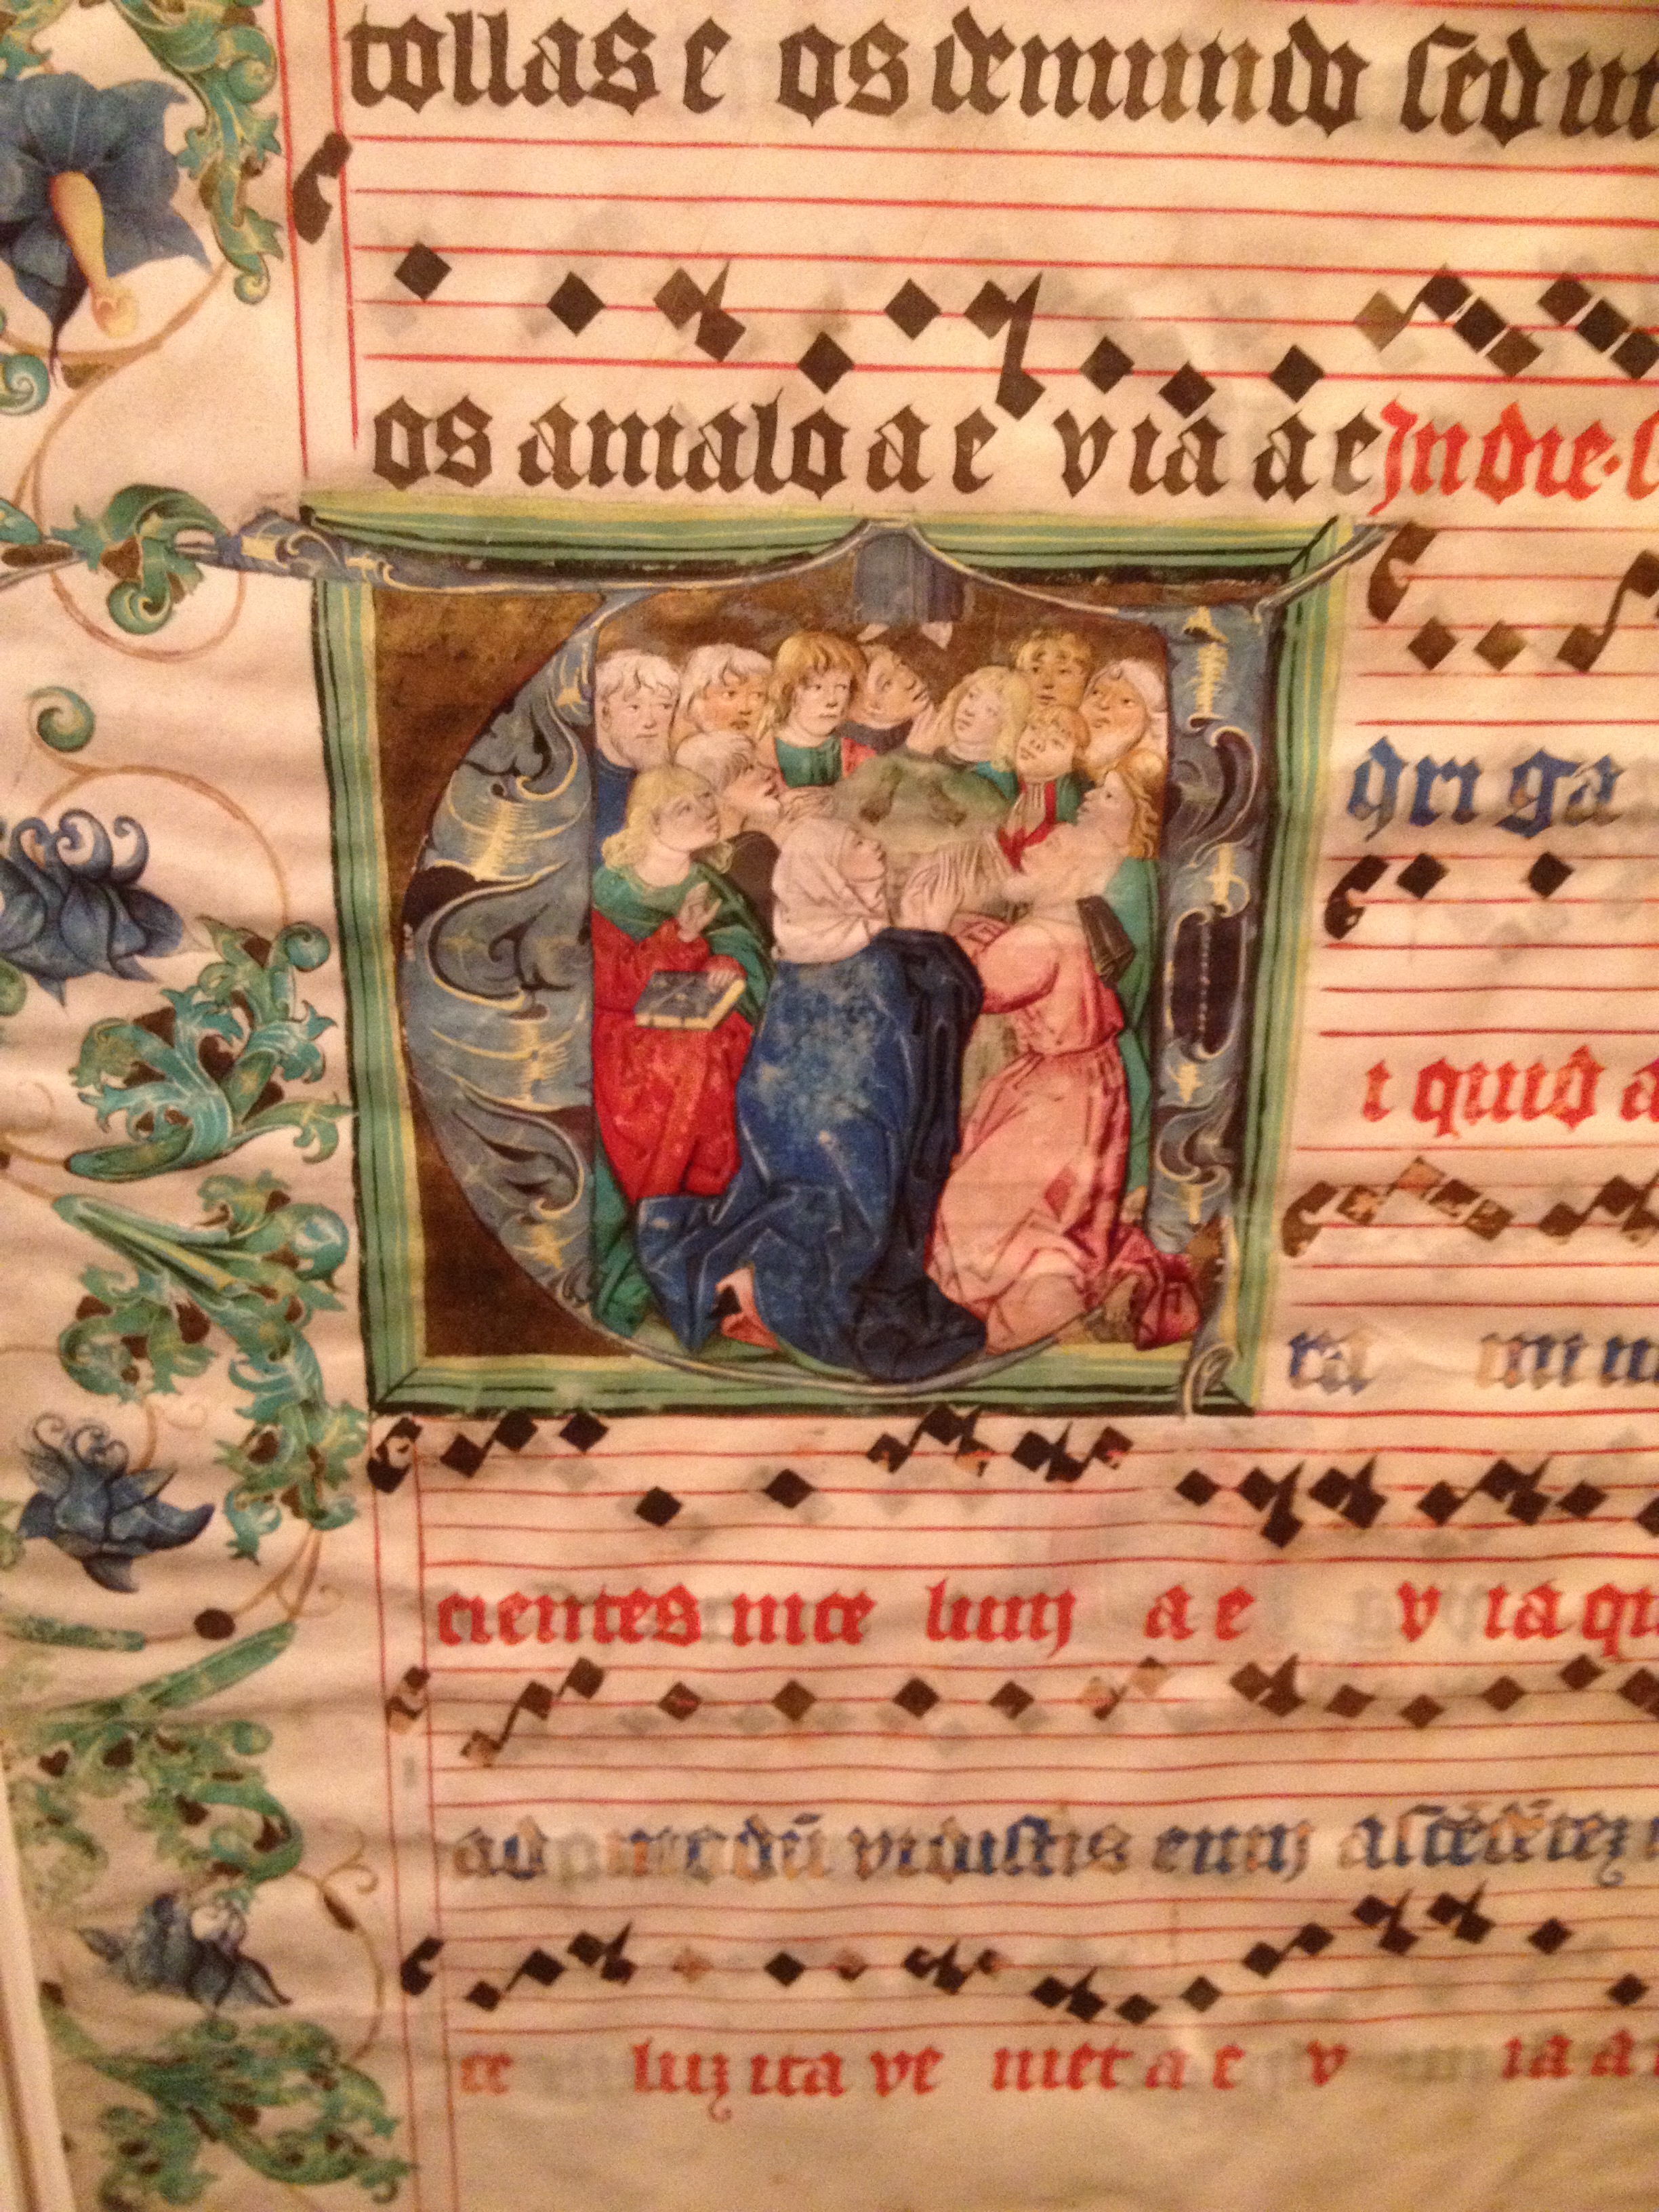 tollas e os de mundo sed ut
os a malo a e via ae In die
Viri ga
i quid a
ra mi ni
cientes in ce lum a e v ia qu
ad modū vidistis eum ascēdētez
ce luz ita ve niet a e v ia a